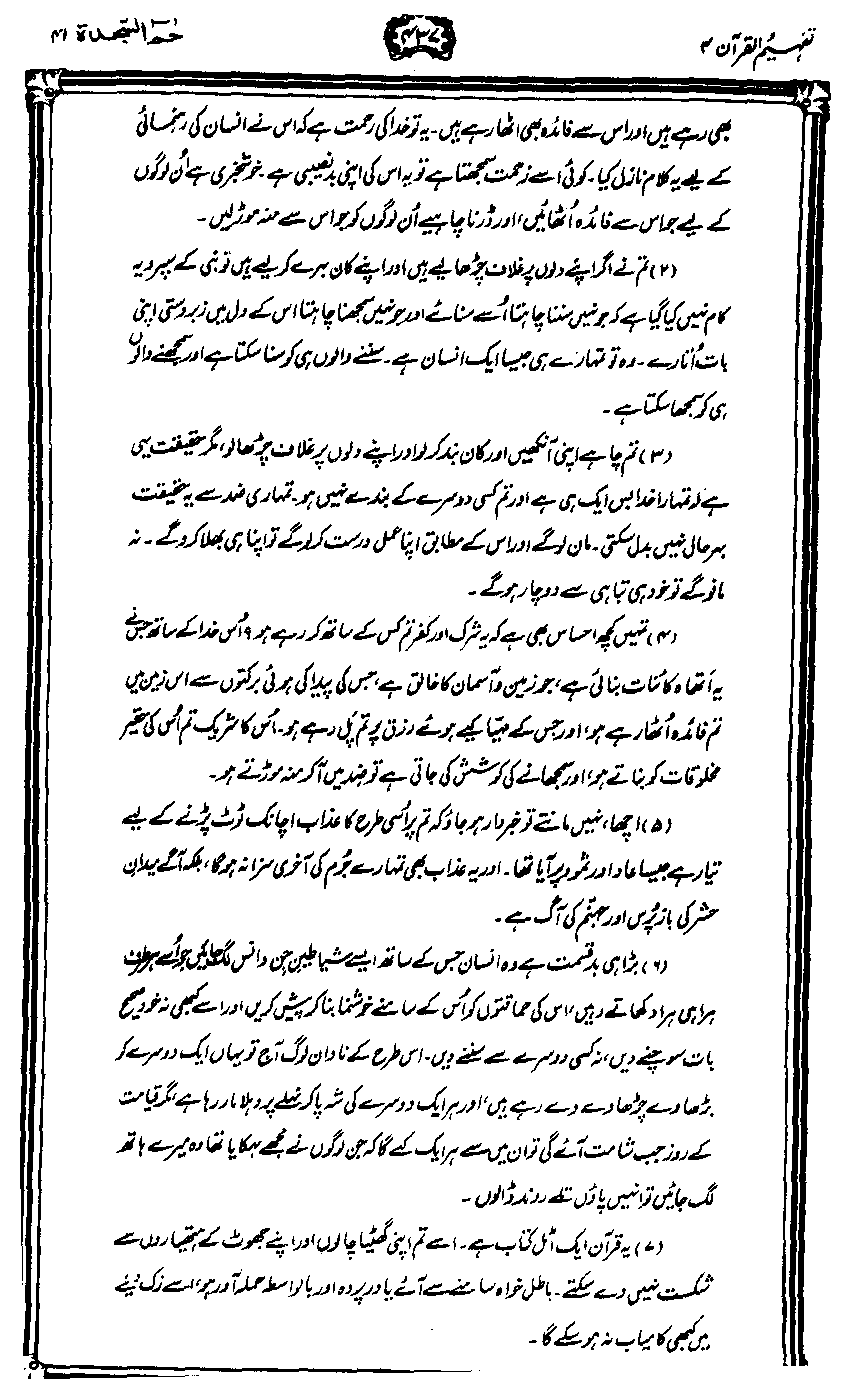 تفہیم القرآن ۴
۴۳۷
حٰمٓ السجدۃ ۴۱
بھی رہے ہیں اور اس سے فائدہ بھی اٹھا رہے ہیں۔ یہ تو خدا کی رحمت ہے کہ اس نے انسان کی رہنمائی
کے لیے یہ کلام نازل کیا۔ کوئی اسے زحمت سمجھتا ہے تو یہ اس کی اپنی بدنصیبی ہے۔ خوشخبری ہے اُن لوگوں
کے لیے جو اس سے فائدہ اُٹھائیں، اور ڈرنا چاہیے اُن لوگوں کو جو اس سے منہ موڑ لیں۔
(۲) تم نے اگر اپنے دلوں پر غلاف چڑھا لیے ہیں اور اپنے کان بہرے کر لیے ہیں تو نبی کے سپرد یہ
کام نہیں کیا گیا ہے کہ جو نہیں سننا چاہتا اُسے سنائے اور جو نہیں سمجھنا چاہتا اس کے دل میں زبردستی اپنی
بات اُتارے۔ وہ تو تمہارے ہی جیسا ایک انسان ہے۔ سننے والوں ہی کو سنا سکتا ہے اور سمجھنے والوں
ہی کو سمجھا سکتا ہے۔
(۳) تم چاہے اپنی آنکھیں اور کان بند کر لو اور اپنے دلوں پر غلاف چڑھا لو، مگر حقیقت یہی
ہے کہ تمہارا خدا بس ایک ہی ہے اور تم کسی دوسرے کے بندے نہیں ہو۔ تمہاری ضد سے یہ حقیقت
بہرحال نہیں بدل سکتی۔ مان لو گے اور اس کے مطابق اپنا عمل درست کر لو گے تو اپنا ہی بھلا کرو گے۔ نہ
مانو گے تو خود ہی تباہی سے دوچار ہو گے۔
(۴) تمہیں کچھ احساس بھی ہے کہ یہ شرک اور کفر تم کس کے ساتھ کر رہے ہو؟ اُس خدا کے ساتھ جس نے
یہ اتھاہ کائنات بنائی ہے، جو زمین و آسمان کا خالق ہے، جس کی پیدا کی ہوئی برکتوں سے اس زمین میں
تم فائدہ اُٹھا رہے ہو، اور جس کے مہیا کیے ہوئے رزق پر تم پل رہے ہو۔ اُس کا شریک تم اُس کی حقیر
مخلوقات کو بناتے ہو، اور سمجھانے کی کوشش کی جاتی ہے تو ضد میں آ کر منہ موڑتے ہو۔
(۵) اچھا، نہیں مانتے تو خبردار ہو جاؤ کہ تم پر اُسی طرح کا عذاب اچانک ٹوٹ پڑنے کے لیے
تیار ہے جیسا عاد اور ثمود پر آیا تھا۔ اور یہ عذاب بھی تمہارے جُرم کی آخری سزا نہ ہوگا، بلکہ آگے میدان
حشر کی باز پُرس اور جہنم کی آگ ہے۔
(۶) بڑا ہی بدقسمت ہے وہ انسان جس کے ساتھ ایسے شیاطینِ جن و انس لگ جائیں جو اُسے ہر طرف
ہرا ہی ہرا دکھاتے رہیں، اس کی حماقتوں کو اُس کے سامنے خوشنما بنا کر پیش کریں اور اسے کبھی نہ خود صحیح
بات سوچنے دیں، نہ کسی دوسرے سے سننے دیں۔ اس طرح کے نادان لوگ آج تو یہاں ایک دوسرے کو
بڑھاوے چڑھاوے دے رہے ہیں، اور ہر ایک دوسرے کی شہ پا کر نہلے پر دہلا مار رہا ہے، مگر قیامت
کے روز جب شامت آئے گی تو ان میں سے ہر ایک کہے گا کہ جن لوگوں نے مجھے بہکایا تھا وہ میرے ہاتھ
لگ جائیں تو انہیں پاؤں تلے روند ڈالوں۔
(۷) یہ قرآن ایک اٹل کتاب ہے۔ اسے تم اپنی گھٹیا چالوں اور اپنے جھوٹ کے ہتھیاروں سے
شکست نہیں دے سکتے۔ باطل خواہ سامنے سے آئے یا در پردہ اور بالواسطہ حملہ آور ہو، اسے زک دینے
میں کبھی کامیاب نہ ہو سکے گا۔